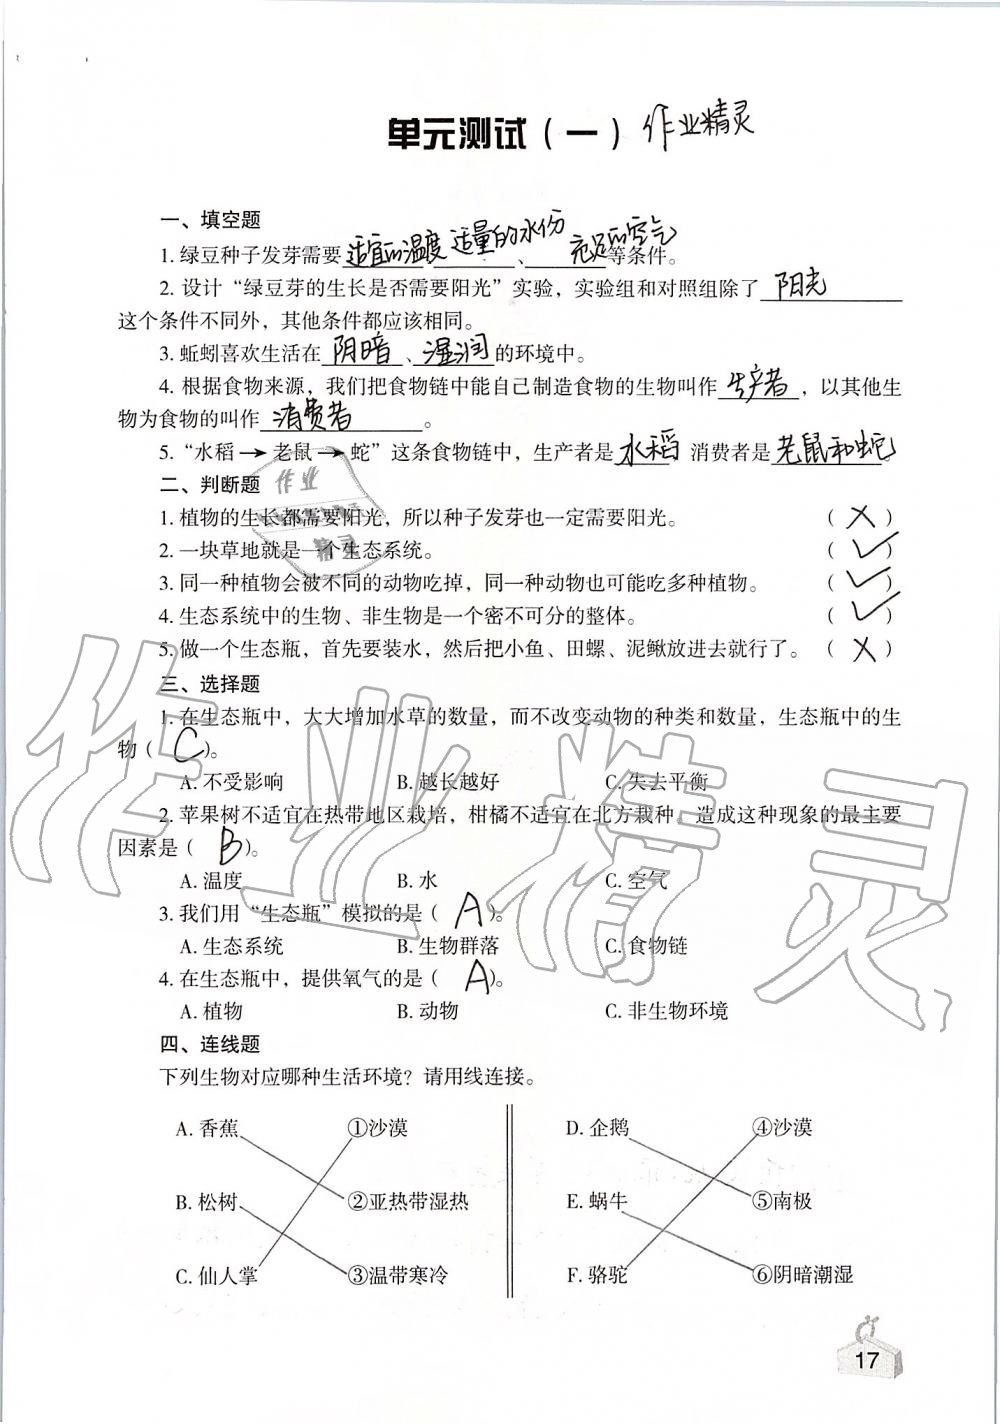 单元测试（一） 作业精灵
一、填空题
1. 绿豆种子发芽需要适宜的温度、适量的水份、充足的空气等条件。
2. 设计“绿豆芽的生长是否需要阳光”实验，实验组和对照组除了阳光
这个条件不同外，其他条件都应该相同。
3. 蚯蚓喜欢生活在阴暗、湿润的环境中。
4. 根据食物来源，我们把食物链中能自己制造食物的生物叫作生产者，以其他生
物为食物的叫作消费者。
5. “水稻→老鼠→蛇”这条食物链中，生产者是水稻，消费者是老鼠和蛇。
二、判断题
1. 植物的生长都需要阳光，所以种子发芽也一定需要阳光。（×）
2. 一块草地就是一个生态系统。（✓）
3. 同一种植物会被不同的动物吃掉，同一种动物也可能吃多种植物。（✓）
4. 生态系统中的生物、非生物是一个密不可分的整体。（✓）
5. 做一个生态瓶，首先要装水，然后把小鱼、田螺、泥鳅放进去就行了。（×）
三、选择题
1. 在生态瓶中，大大增加水草的数量，而不改变动物的种类和数量，生态瓶中的生
物（C）。
A. 不受影响 B. 越长越好 C. 失去平衡
2. 苹果树不适宜在热带地区栽培，柑橘不适宜在北方栽种，造成这种现象的最主要
因素是（B）。
A. 温度 B. 水 C. 空气
3. 我们用“生态瓶”模拟的是（A）。
A. 生态系统 B. 生物群落 C. 食物链
4. 在生态瓶中，提供氧气的是（A）。
A. 植物 B. 动物 C. 非生物环境
四、连线题
下列生物对应哪种生活环境？请用线连接。
A. 香蕉 ①沙漠 D. 企鹅 ④沙漠
B. 松树 ②亚热带湿热 E. 蜗牛 ⑤南极
C. 仙人掌 ③温带寒冷 F. 骆驼 ⑥阴暗潮湿
17
作业
精灵
作业精灵